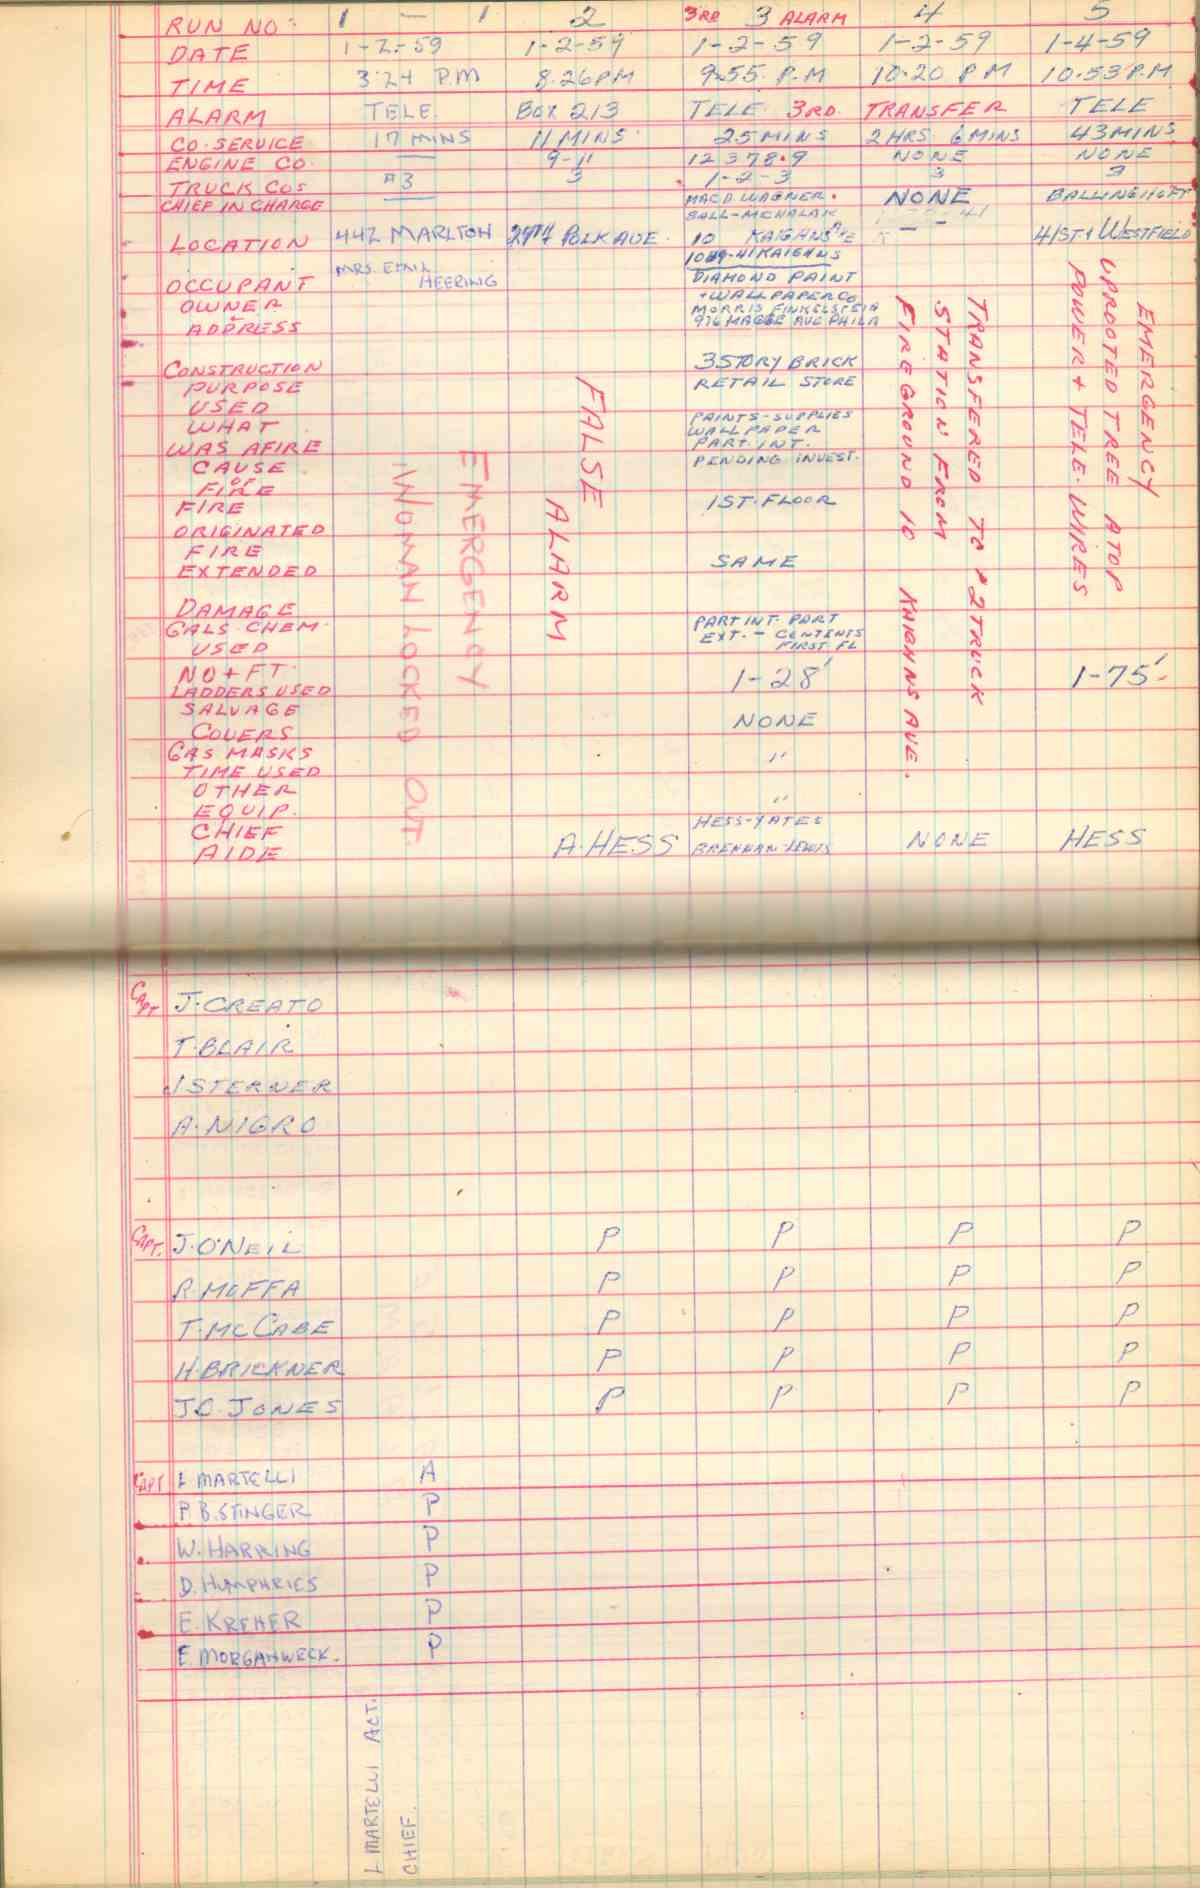 RUN NO: 1 — 1 2 3RD 3 ALARM 4 5
DATE 1-2-59 1-2-59 1-2-59 1-2-59 1-4-59
TIME 3:24 P.M 8.26PM 9.55. P.M 10.20 PM 10.53 P.M
ALARM TELE. BOX 213 TELE 3RD. TRANSFER TELE
CO. SERVICE 17 MINS 11 MINS 25 MINS 2 HRS 6 MINS 43 MINS
ENGINE CO. 9-11 12 3 7 8.9 NONE NONE
TRUCK COS #3 3 1-2-3 3 3
CHIEF IN CHARGE MACD. WAGNER. NONE
BALL-MCHALAK
LOCATION 442 MARLTON 29TH POLK AVE. 10 KAIGHNS AVE 41ST & WESTFIELD
1039-41 KAIGHNS
OCCUPANT MRS. EMIL HEERING DIAMOND PAINT
+ WALLPAPER CO
OWNER MORRIS FINKELSTEIN
ADDRESS 976 MAGEE AVE PHILA
CONSTRUCTION 3 STORY BRICK
PURPOSE RETAIL STORE
USED
WHAT PAINTS-SUPPLIES
WALLPAPER
WAS AFIRE PART. INT.
CAUSE PENDING INVEST.
OF
FIRE
FIRE 1ST. FLOOR
ORIGINATED
FIRE
EXTENDED SAME
DAMAGE
GALS. CHEM. PART INT. PART
USED EXT. - CONTENTS
FIRST FL
NO + FT. 1-28' 1-75'
LADDERS USED
SALVAGE
COVERS NONE
GAS MASKS "
TIME USED
OTHER "
EQUIP.
CHIEF HESS-YATES
AIDE A. HESS BRENNAN-LEWIS NONE HESS
EMERGENCY
WOMAN LOCKED OUT.
FALSE
ALARM
TRANSFERED TO #2 TRUCK
STATION FROM
FIREGROUND 10 KAIGHNS AVE.
EMERGENCY
UPROOTED TREE ATOP
POWER + TELE. WIRES
CAPT J. CREATO
T. BLAIR
J STERNER
A. NIGRO
CAPT. J. O'NEIL P P P P
R. MOFFA P P P P
T. MCCABE P P P P
H. BRICKNER P P P P
J.C. JONES P P P P
CAPT L MARTELLI A
P. B. STINGER P
W. HARRING P
D. HUMPHRIES P
E. KREHER P
E. MORGANWECK. P
L MARTELLI ACT.
CHIEF.